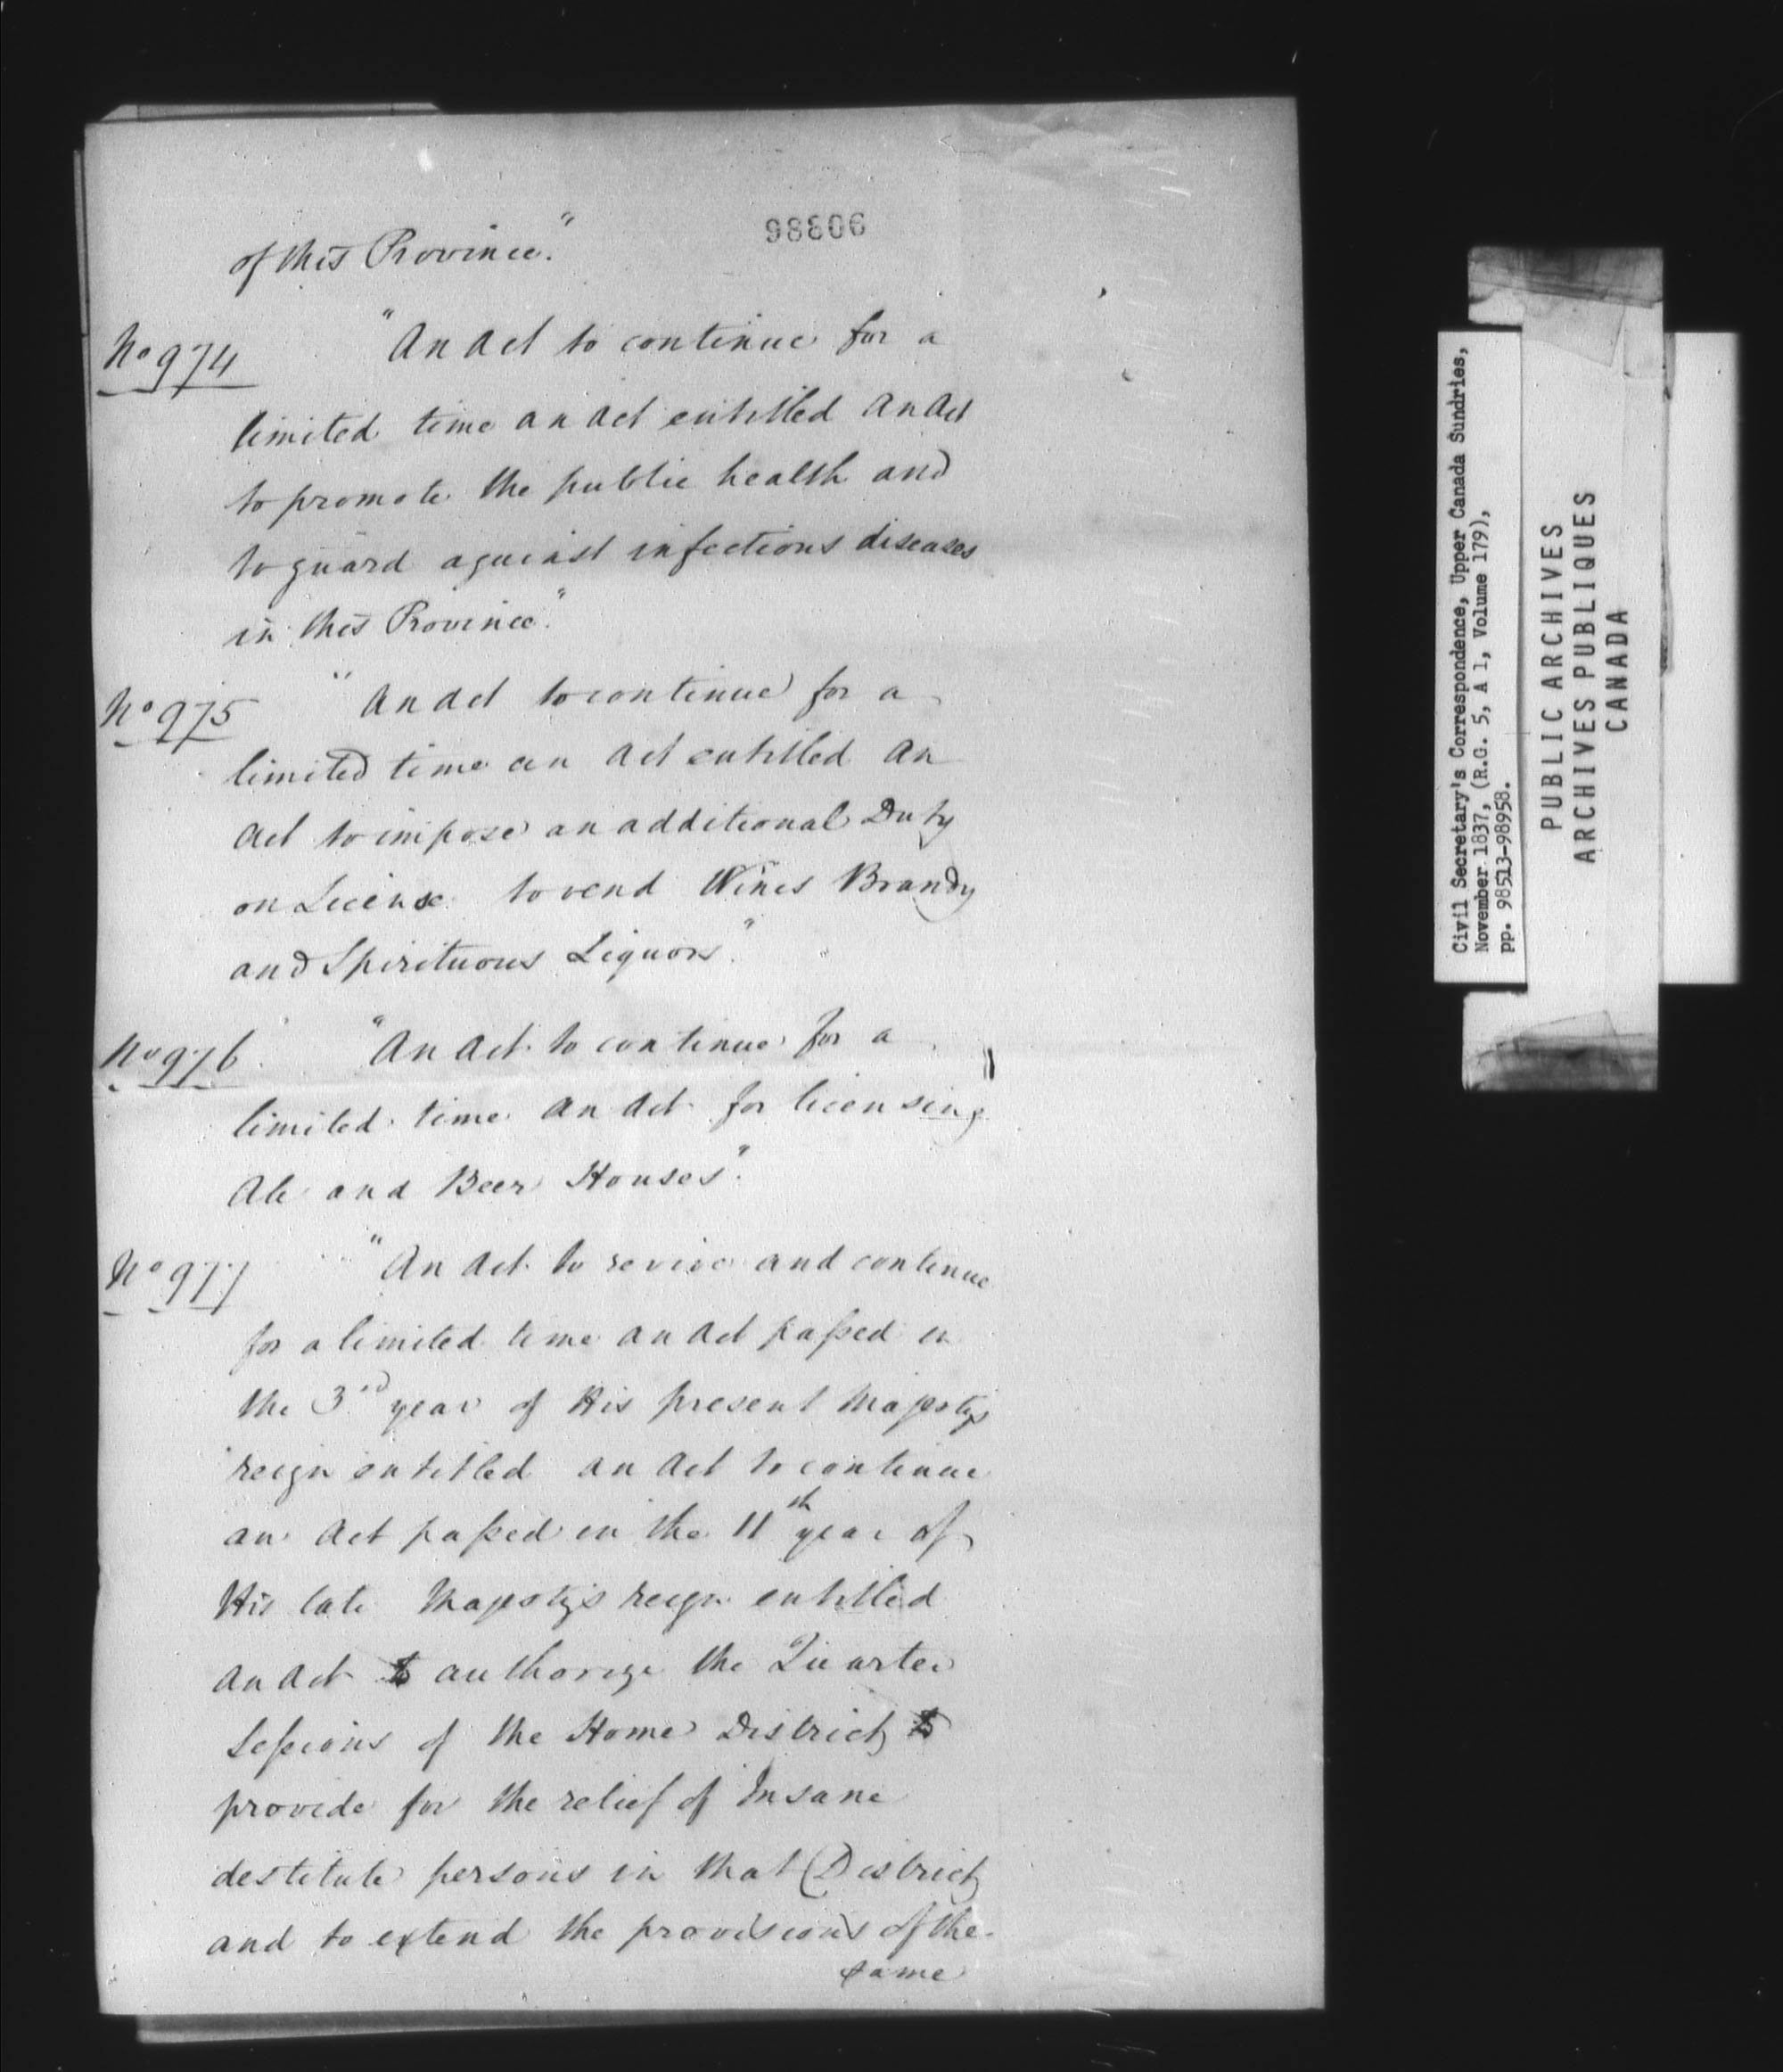 98806
of this Province."
No 974 "An Act to continue for a
limited time an Act entitled An Act
to promote the public health and
to guard against infectious diseases
in this Province."
No 975 "An Act to continue for a
limited time an Act entitled An
Act to impose an additional Duty
on License to vend Wines Brandy
and Spirituous Liquors".
No 976 "An Act to continue for a
limited time An Act for licensing
Ale and Beer Houses".
No 977 "An Act to revive and continue
for a limited time an Act passed in
the 3rd year of His present Majestys
reign entitled an Act to continue
an Act passed in the 11th year of
His late Majesty's reign entitled
An Act to authorize the Quarter
Sessions of the Home District to
provide for the relief of Insane
destitute persons in that District
and to extend the provisions of the
same
Civil Secretary's Correspondence, Upper Canada Sundries,
November 1837, (R.G. 5, A 1, Volume 179),
pp. 98513-98958.
PUBLIC ARCHIVES
ARCHIVES PUBLIQUES
CANADA